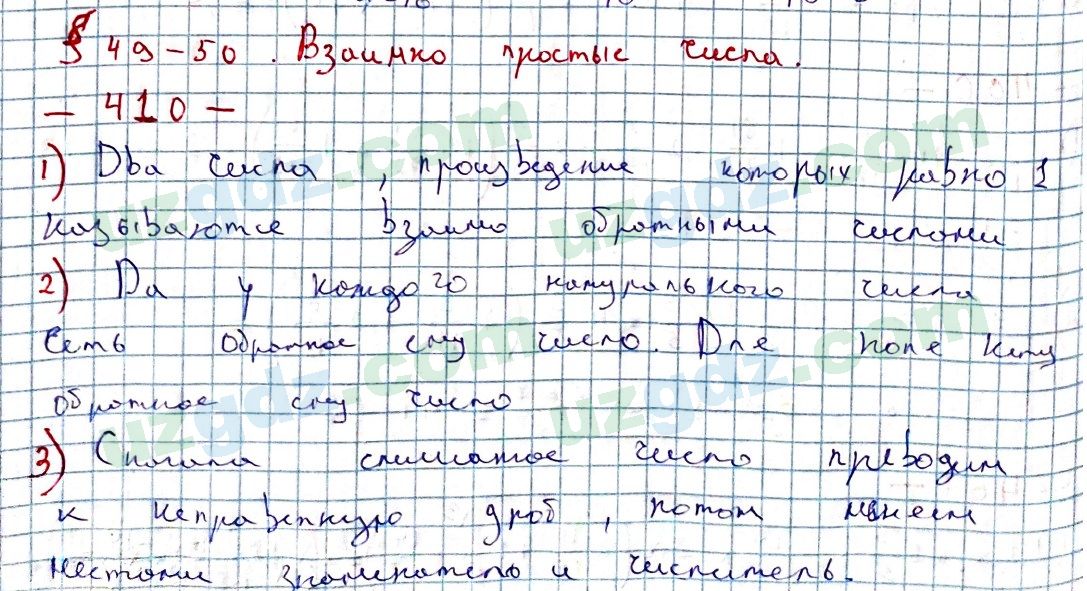 § 49-50. Взаимно простые числа.
- 410 -
1) Два числа, произведение которых равно 1
называются взаимо обратными числами
2) Да у каждого натурального числа
есть обратное ему число. Для ноля нету
обратное ему число
3) Сначала смешаное число преводим
к неправельную дроб, потом меняем
местами знаменатель и числитель.
uzgdz.com
uzgdz.com
uzgdz.com
uzgdz.com